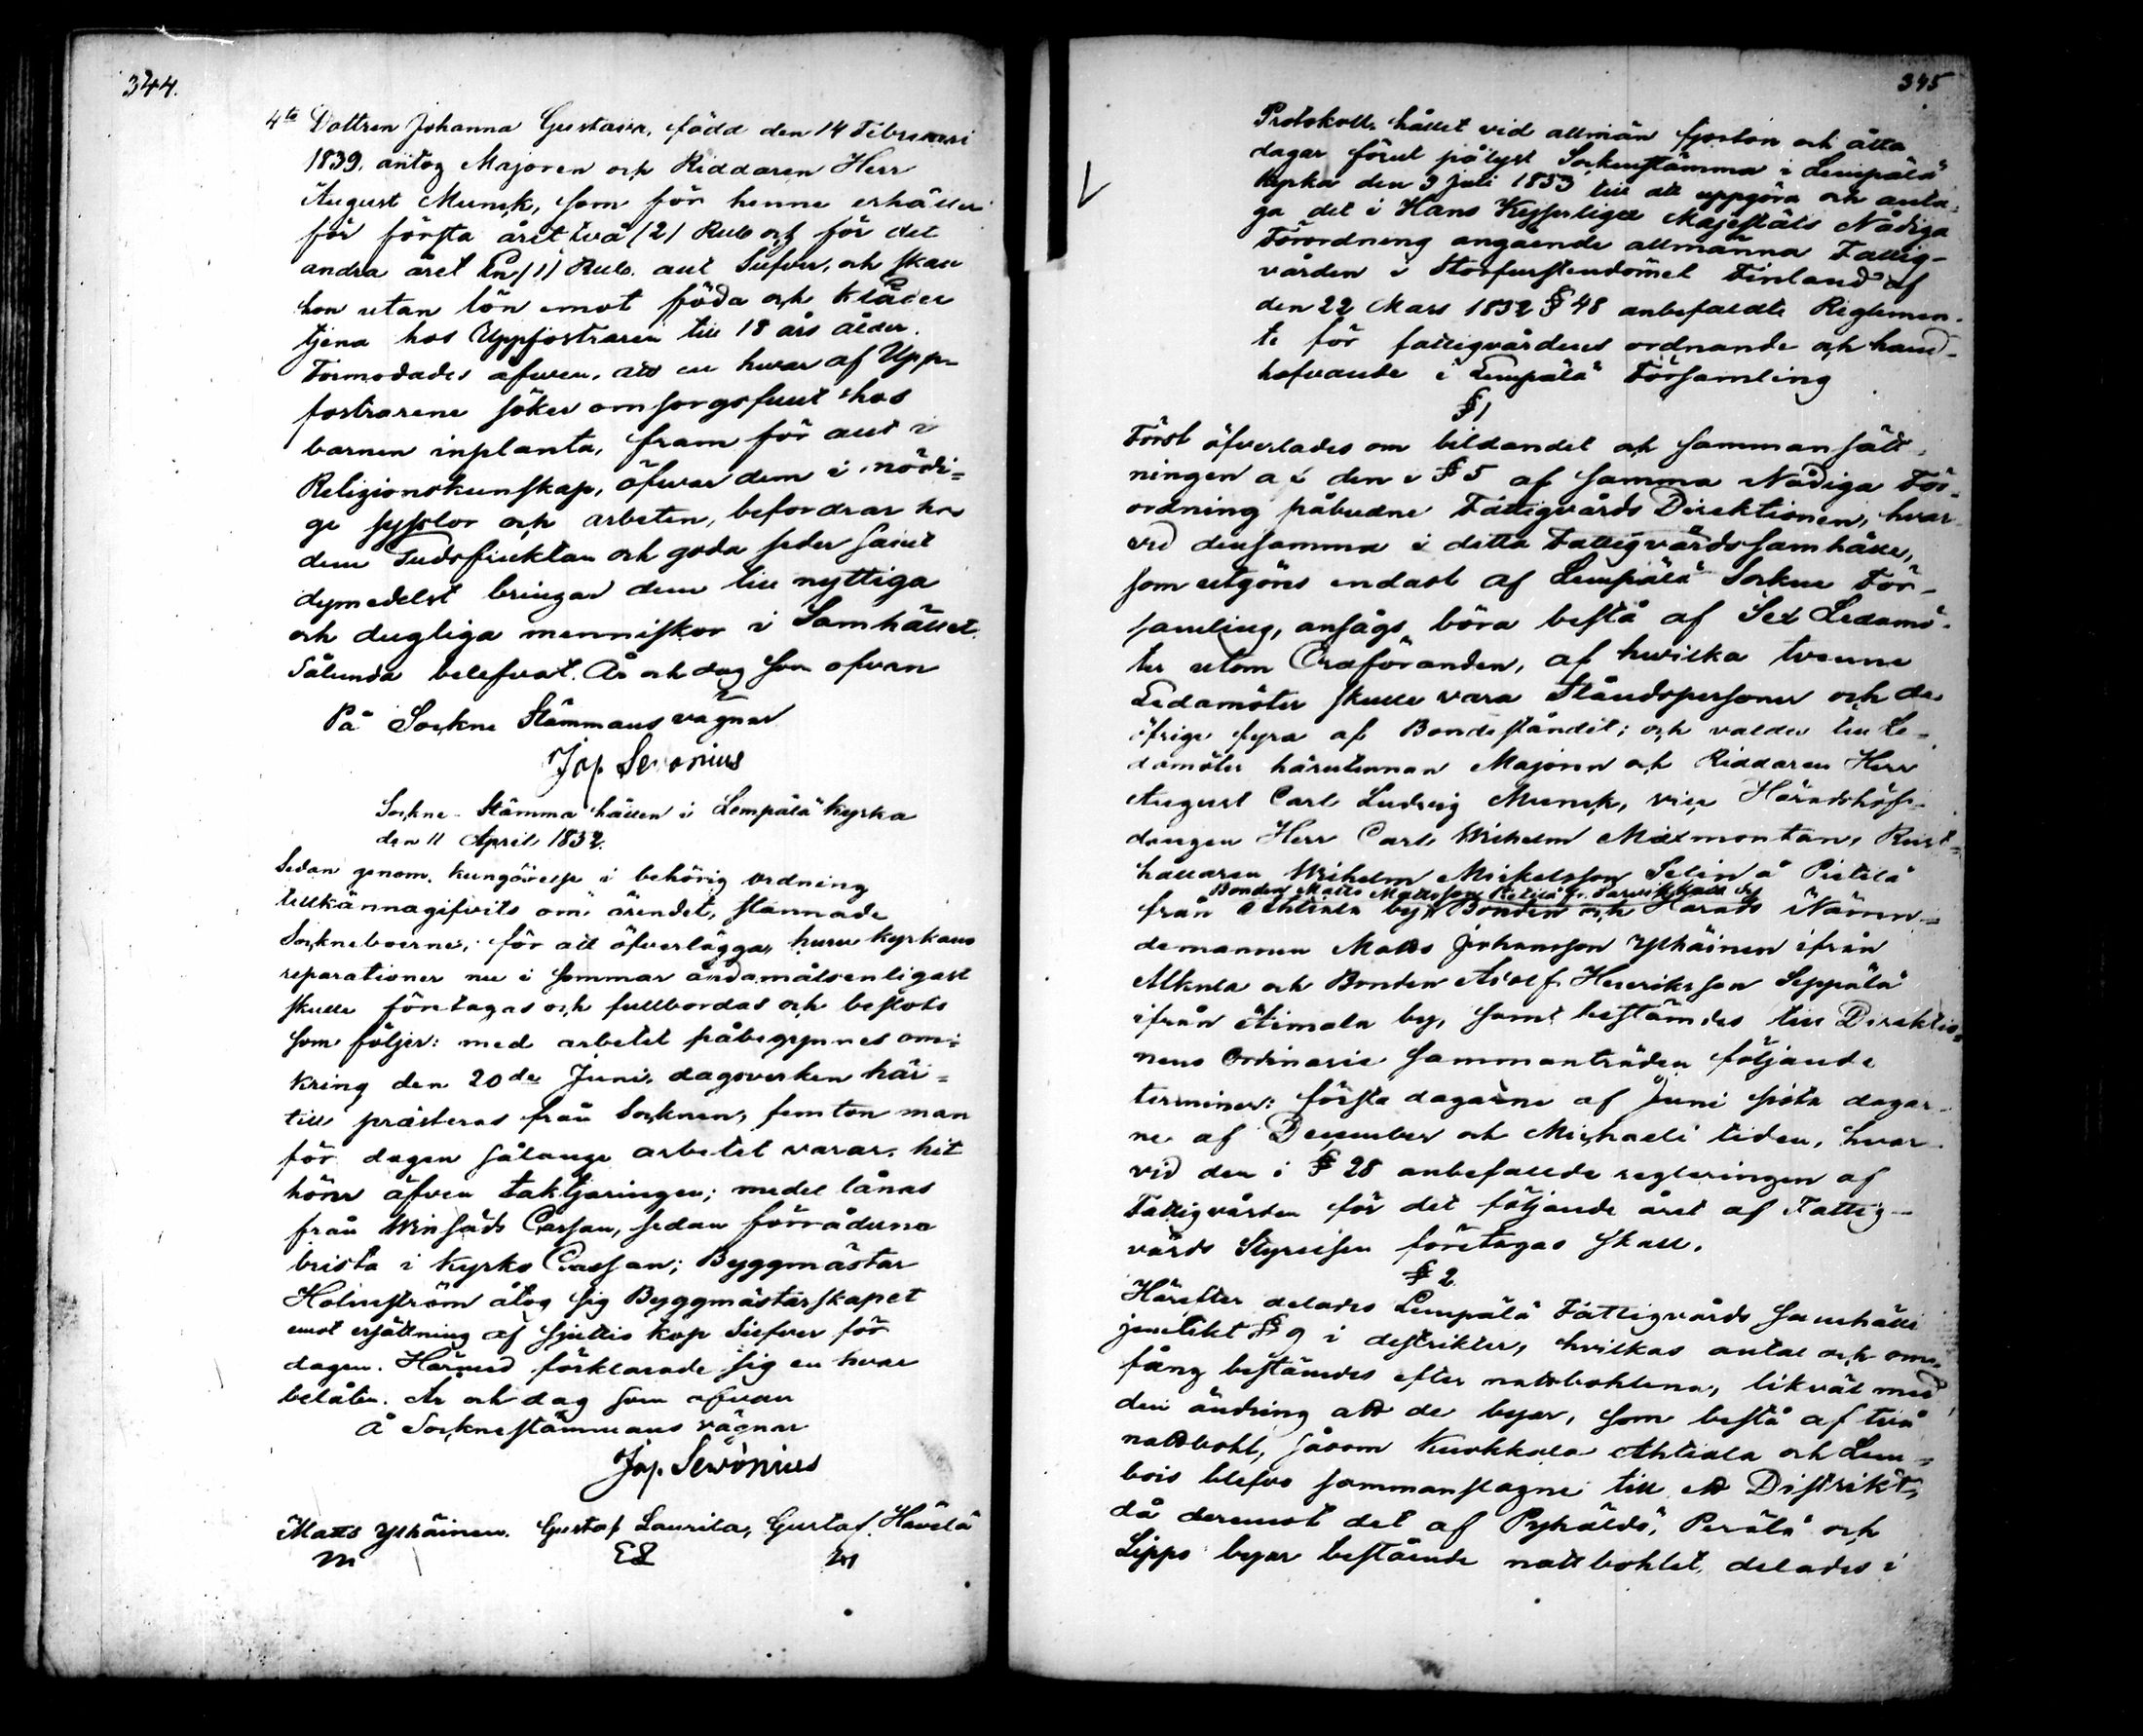 344.
4ta Dottren Johanna Gustava, född den 14 Februari
1839. antog Majoren och Riddaren Herr
August Munck, som för henne erhåller
för första året två /2/ Rub och för det
andra året En /1/ Rub. allt Silfver, och skall
hon utan lön emot föda och kläder
tjena hos Uppfostraren till 18 års ålder.
Förmodades äfwen, att en hwar af Upp-
fostrarene söker omsorgsfullt hos
barnen inplanta, fram för allt i
Religionskunskap, öfwar dem i nödi=
ge sysslor och arbeten, befordrar hos
dem Gudsfrucktan och goda seder samt
dymedelst bringar dem till nyttiga
och dugliga menniskor i Samhället.
Sålunda belefvat. År och dag som ofvan
På Sockne Stämmans vägnar
Jos. Sevonius
Sockne-Stämma hållen i Lempälä kyrka
den 11 April 1852.
Sedan genom kungörelse i behörig ordning
tillkännagifvits om ärendet, stannade
Sockneboerne, för att öfverlägga, huru kyrkans
reparationer nu i sommar ändamålsenligast
skulle företagas och fullbordas och beslöts
som följer: med arbetet påbegynnes om=
kring den 20de Juni, dagsverken här=
till presteras från Socknen, femton man
för dagen sålänge arbetet varar, hit
hörer äfven taktjäringen; medel lånas
från Winsäds Cassan, sedan förråderna
brista i Kyrko Cassan; Byggmästar
Holmström åtog sig Byggmästarskapet
emot ersättning af sjuttio kop Silfver för
dagen. Härmed förklarade sig en hvar
belåten. År och dag som ofvan
Å Socknestämmans vägnar
Jos. Sevonius
Matts Yskäinen. Gustaf Laurila, Gustaf Havelä
345
Protokoll, hållet vid allmän fjorton och åtta
dagar förut pålyst Sockenstämma i Lempälä
kyrka den 3 Juli 1853 till att uppgöra och anta-
ga det i Hans Kejserliga Majestäts Nådiga
Förordning angående allmänna Fattig-
vården i Storfurstendömet Finland af
den 22 Mars 1852 § 48 anbefaldte Reglemen-
te för fattigvårdens ordnande och hand-
hafvande i Lempälä Församling
§ 1
Först öfverlades om bildandet och sammansätt-
ningen af den i § 5 af samma Nådiga För-
ordning påbudne Fattigvårds Direktionen, hvar-
vid densamma i detta Fattigvårdssamhälle,
som utgöres endast af Lempälä Sockne För-
samling, ansågs böra bestå af Sex Ledamö-
ter utom Ordföranden, af hwilka tvenne
Ledamöter skulle vara Ståndspersoner och de
öfrige fyra af Bondeståndet; och valdes till Le-
damöter härutinnan Majoren och Riddaren Herr
August Carl Ludvig Munck, vice Häradshöf-
dingen Herr Carl Wilhelm Maxmontan, Rust-
hållaren Wilhelm Mickelsson Selin å Pietilä
Bonden Matts Mattsson Pietilä fr.
från Ahtiala by, Bonden och Härads Nämn=
demannen Matts Johansson Yskäinen ifrån
Alkula och Bonden Adolf Henriksson Seppälä
ifrån Aimala by, samt bestämdes till Direktio-
nens Ordinarie sammanträden följande
terminer: första dagarne af Juni sista dagar-
ne af December och Michaeli tiden, hvar-
vid den i § 28 anbefallde regleringen af
Fattigvården för det följande året af Fattig-
vårds Styrelsen företagas skall.
§ 2
Härefter delades Lempälä Fattigvårds samhälle
jemlikt § 9 i distrikter, hvilkas antal och om-
fång bestämdes efter nattbohlena, likväl med
den ändring att de byar, som bestå af två
nattbohl, såsom Kuokkala Ahtiala och Lem-
bois blefvo sammanslagne till ett Distrikt,
då deremot det af Pyhältö, Perälä och
Lippo byar bestående nattbohlet, delades i